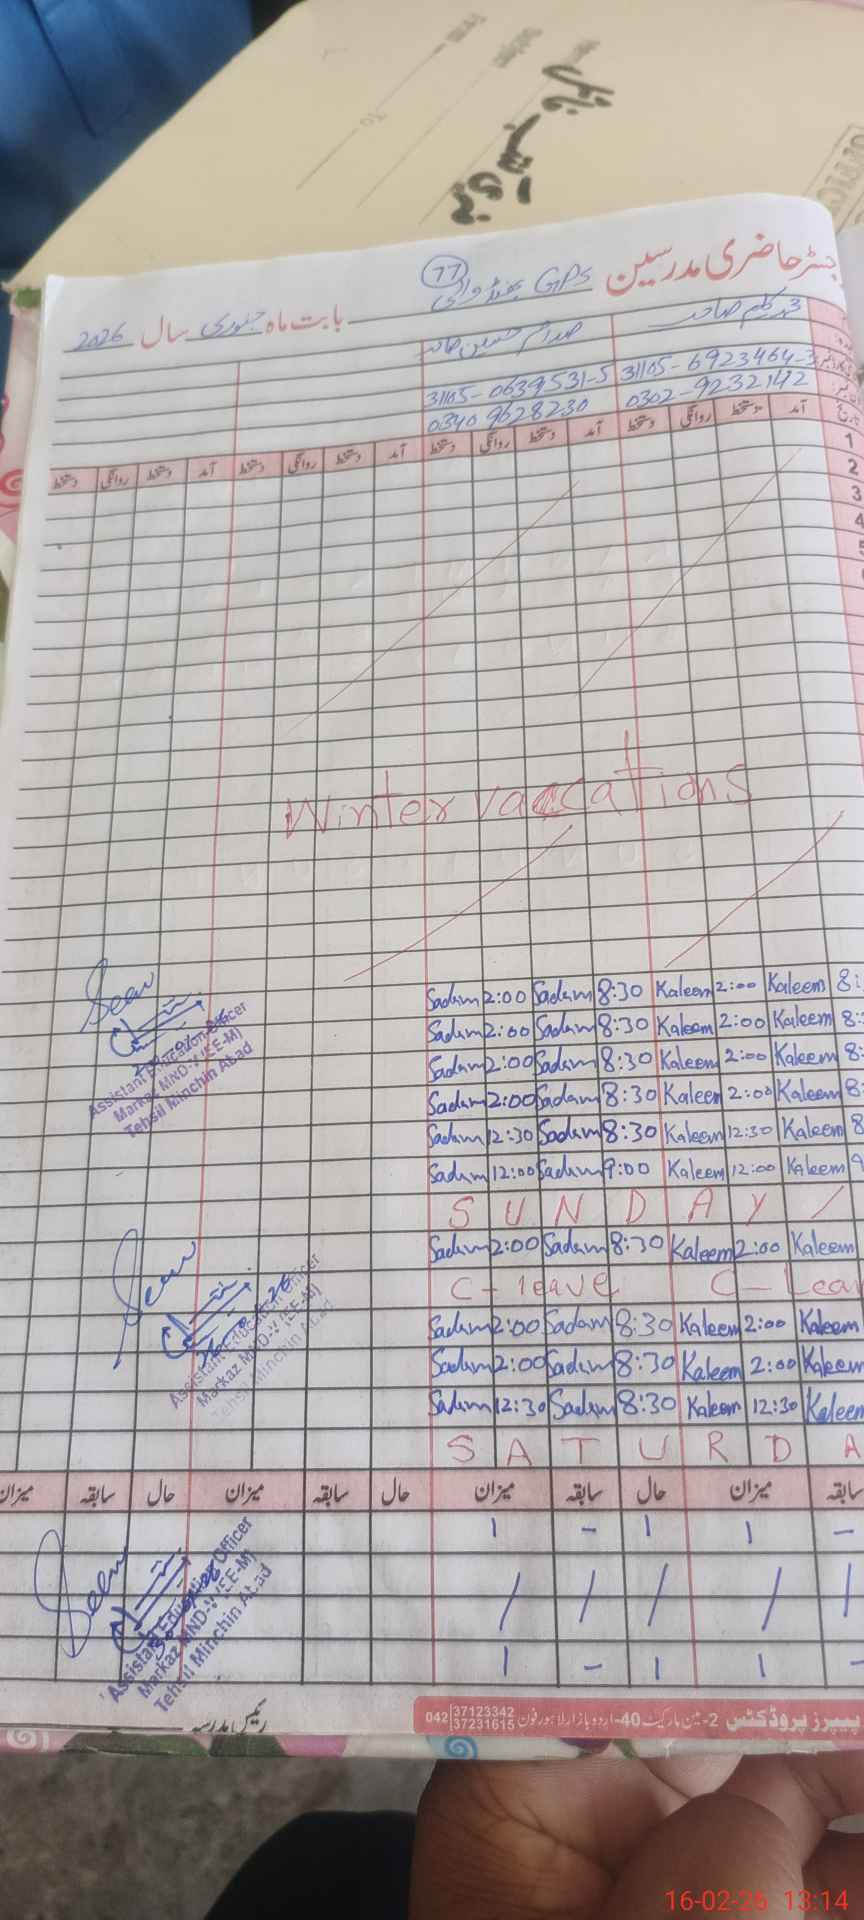 شب فائل
رجسٹر حاضری مدرسین GPS بھنڈ والی 77
بابت ماہ جنوری سال 2026
محمد کلیم صاحب صدام حسین صاحب
31105-6923464-3 31105-0639531-5
0302-9232142 0340 9628230
آمد دستخط روانگی دستخط آمد دستخط روانگی دستخط آمد دستخط روانگی دستخط آمد دستخط روانگی دستخط
1
2
3
4
5
Winter vaccations
Sadam 2:00 Sadam 8:30 Kaleem 2:00 Kaleem 8:
Sadam 2:00 Sadam 8:30 Kaleem 2:00 Kaleem 8:
Sadam 2:00 Sadam 8:30 Kaleem 2:00 Kaleem 8:
Sadam 2:00 Sadam 8:30 Kaleem 2:00 Kaleem 8:
Sadam 12:30 Sadam 8:30 Kaleem 12:30 Kaleem 8
Sadam 12:00 Sadam 9:00 Kaleem 12:00 Kaleem 9
SUNDAY
Sadam 2:00 Sadam 8:30 Kaleem 2:00 Kaleem
C-leave C-Lea
Sadam 2:00 Sadam 8:30 Kaleem 2:00 Kaleem
Sadam 2:00 Sadam 8:30 Kaleem 2:00 Kaleem
Sadam 12:30 Sadam 8:30 Kaleem 12:30 Kaleem
SATURDA
Seen
Assistant Education Officer
Markaz MND-V (EE-M)
Tehsil Minchin Abad
Seen
Assistant Education Officer
Markaz MND-V (EE-M)
Tehsil Minchin Abad
سابقہ میزان حال سابقہ میزان حال سابقہ میزان حال سابقہ میزان
– 1 1 – 1
/ / / / /
– 1 1 – 1
Seen
Assistant Education Officer
Markaz MND-V (EE-M)
Tehsil Minchin Abad
رئیس مدرسہ
پیپرز پروڈکٹس 2-مین مارکیٹ 40-اردو بازار لاہور فون 042 37123342 37231615
16-02-26 13:14